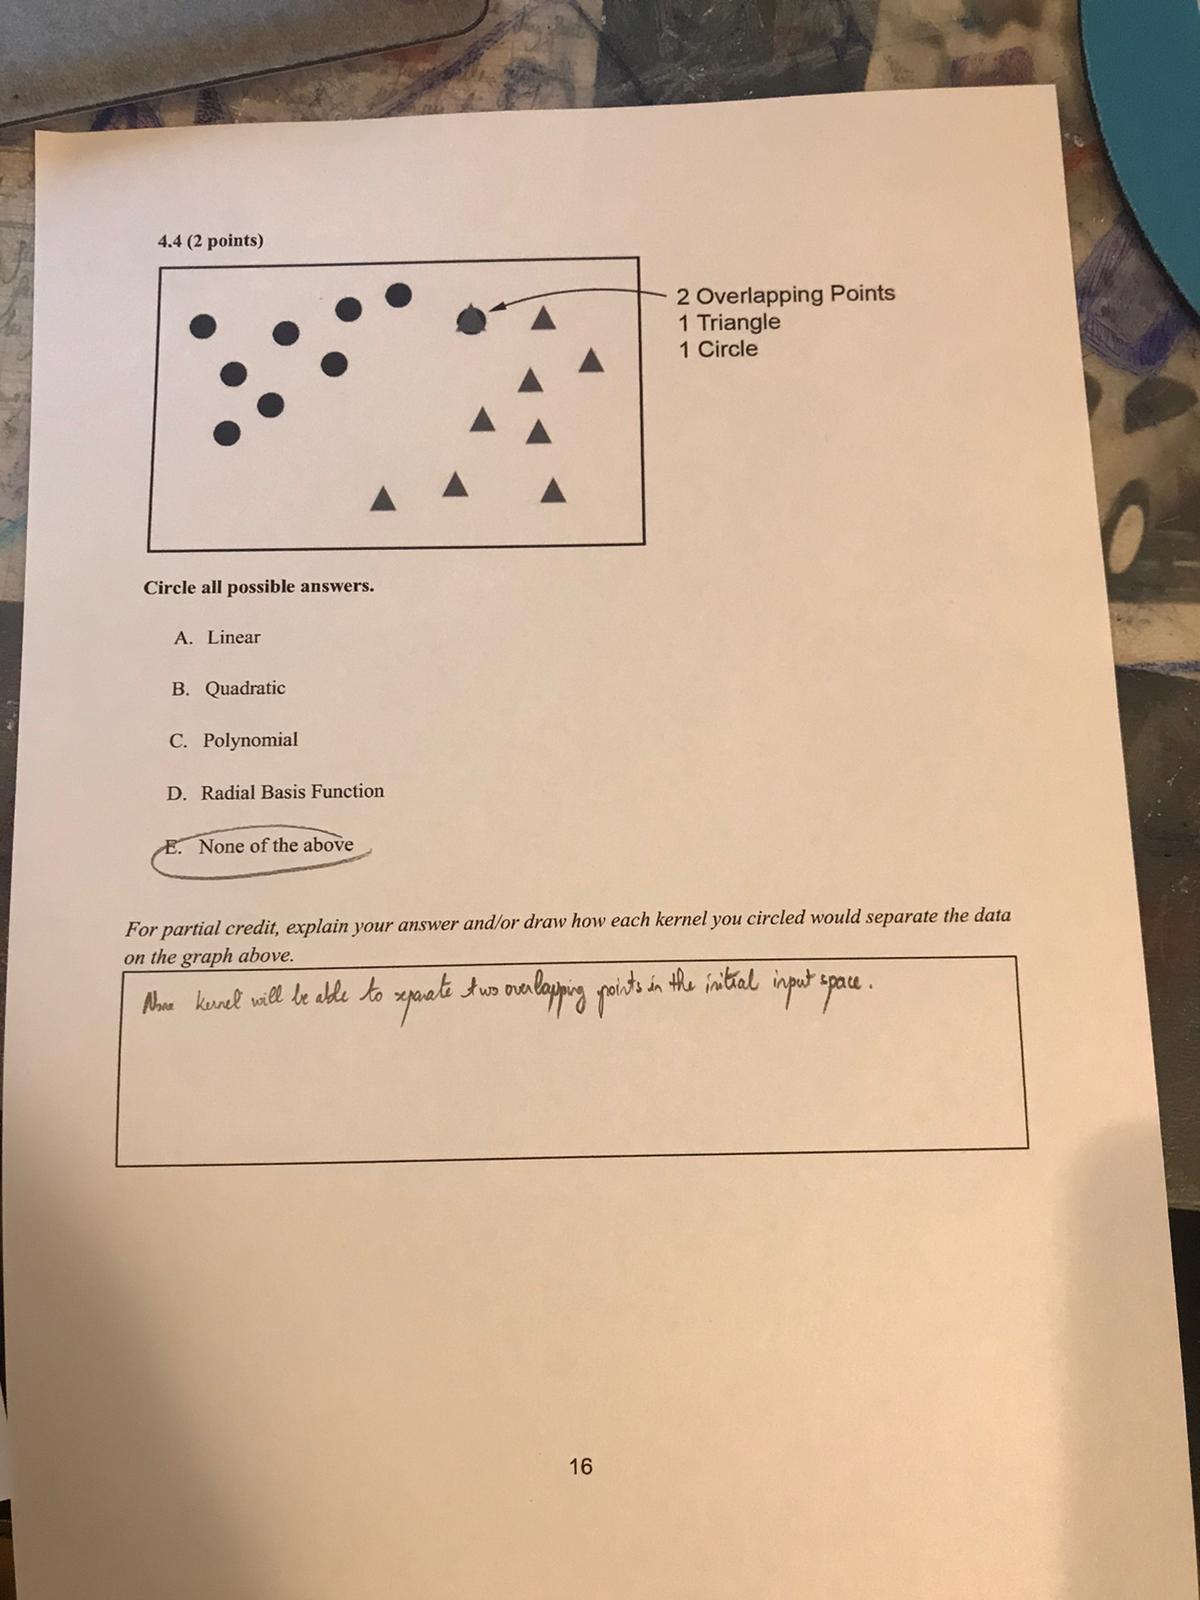 4.4 (2 points)
2 Overlapping Points
1 Triangle
1 Circle
Circle all possible answers.
A. Linear
B. Quadratic
C. Polynomial
D. Radial Basis Function
E. None of the above
For partial credit, explain your answer and/or draw how each kernel you circled would separate the data
on the graph above.
None kernel will be able to separate two overlapping points in the initial input space.
16